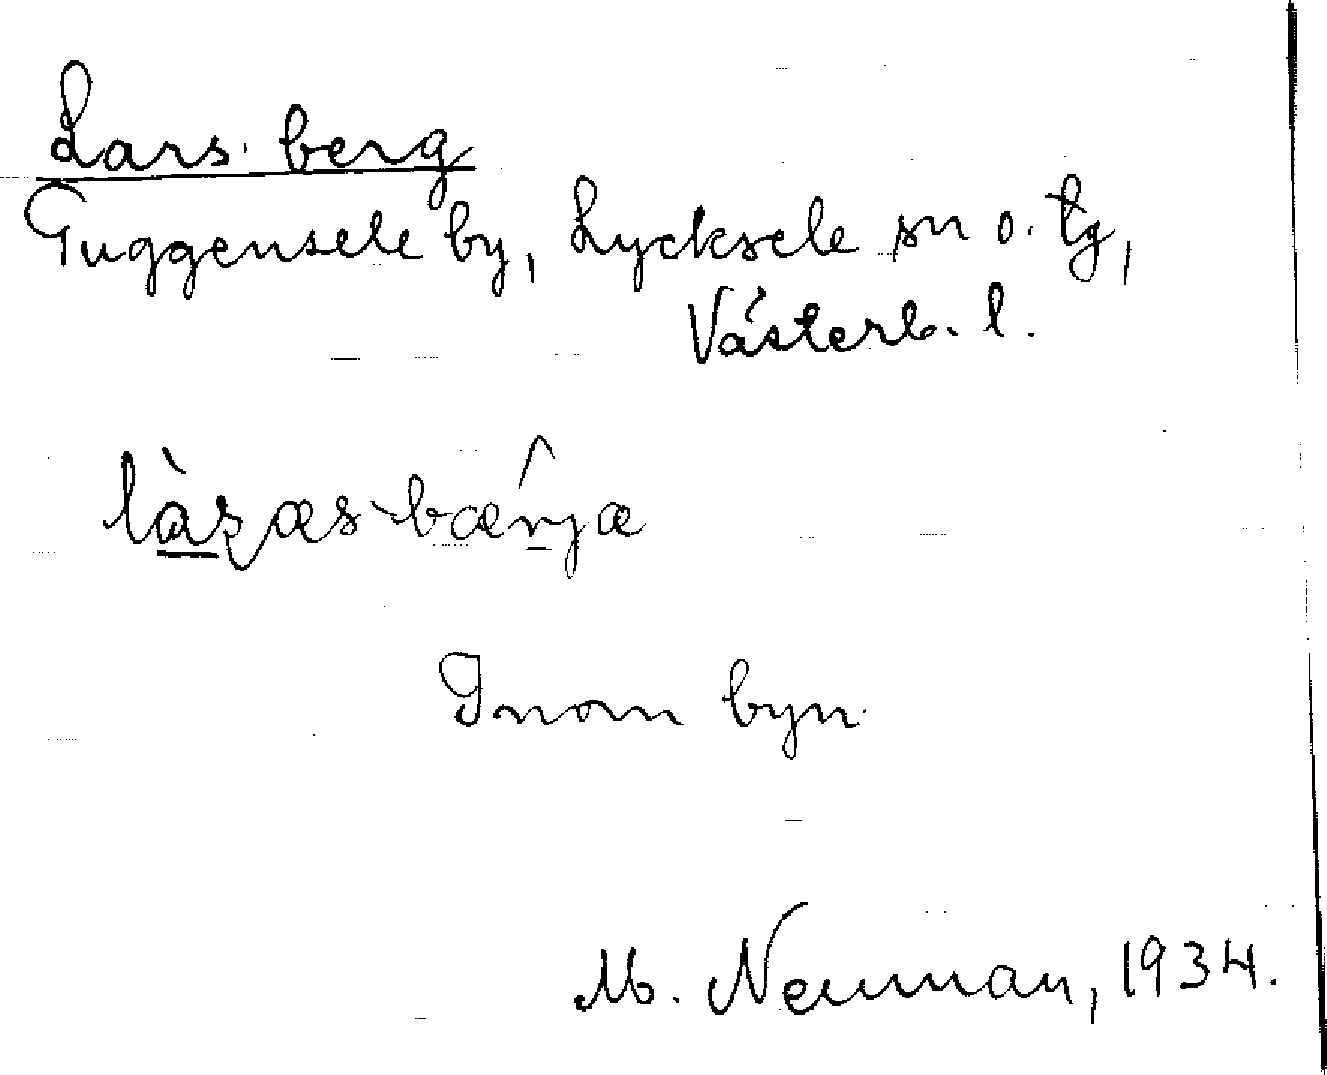 Lars berg
Tuggensele by, Lycksele sn o. tg,
Västerb. l.
làʂæs-bærjæ
Inom byn.
M. Neuman, 1934.